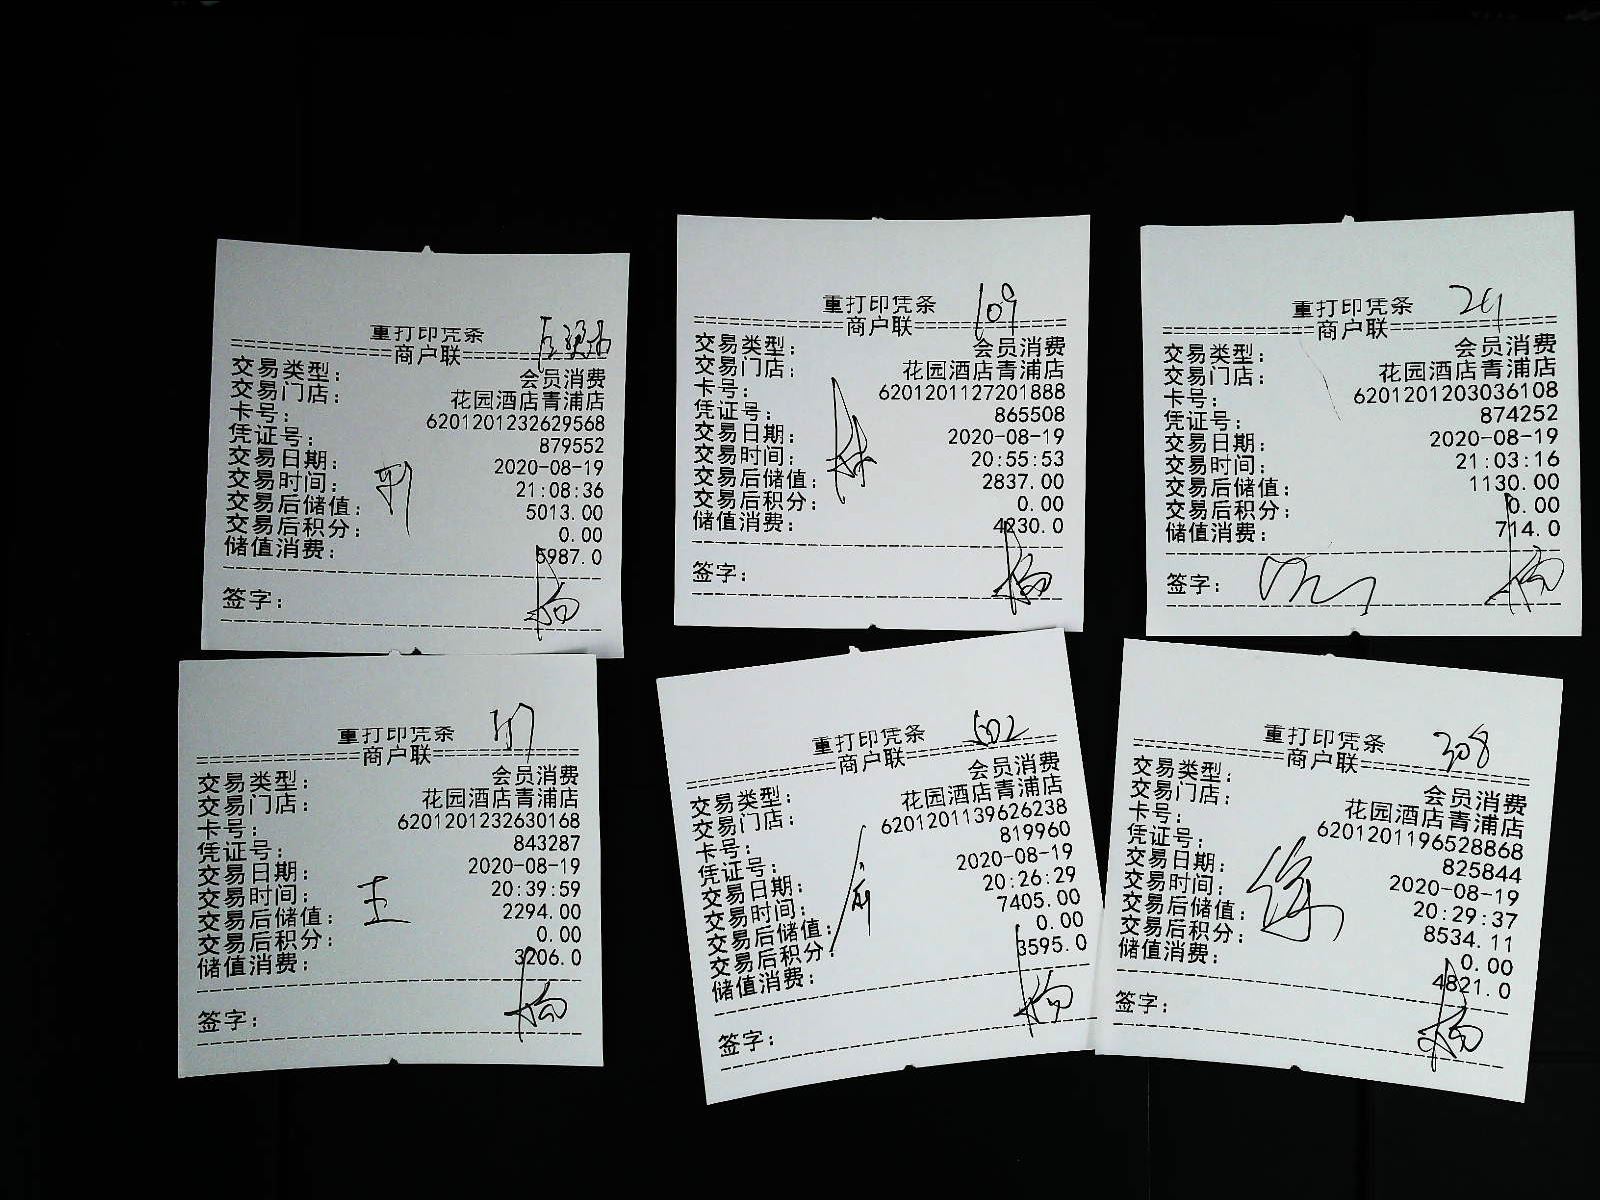 重打印凭条
==========商户联==========
交易类型: 会员消费
交易门店: 花园酒店青浦店
卡号: 6201201232629568
凭证号: 879552
交易日期: 2020-08-19
交易时间: 21:08:36
交易后储值: 5013.00
交易后积分: 0.00
储值消费: 5987.0
签字:
重打印凭条 109
==========商户联==========
交易类型: 会员消费
交易门店: 花园酒店青浦店
卡号: 6201201127201888
凭证号: 865508
交易日期: 2020-08-19
交易时间: 20:55:53
交易后储值: 2837.00
交易后积分: 0.00
储值消费: 4230.0
签字:
重打印凭条
==========商户联==========
交易类型: 会员消费
交易门店: 花园酒店青浦店
卡号: 6201201203036108
凭证号: 874252
交易日期: 2020-08-19
交易时间: 21:03:16
交易后储值: 1130.00
交易后积分: 0.00
储值消费: 714.0
签字:
重打印凭条
==========商户联==========
交易类型: 会员消费
交易门店: 花园酒店青浦店
卡号: 6201201232630168
凭证号: 843287
交易日期: 2020-08-19
交易时间: 20:39:59
王
交易后储值: 2294.00
交易后积分: 0.00
储值消费: 3206.0
签字:
重打印凭条 602
==========商户联==========
交易类型: 会员消费
交易门店: 花园酒店青浦店
卡号: 6201201139626238
凭证号: 819960
交易日期: 2020-08-19
交易时间: 20:26:29
交易后储值: 7405.00
交易后积分: 0.00
储值消费: 3595.0
签字:
重打印凭条 308
==========商户联==========
交易类型: 会员消费
交易门店: 花园酒店青浦店
卡号: 6201201196528868
凭证号: 825844
交易日期: 2020-08-19
交易时间: 20:29:37
徐
交易后储值: 8534.11
交易后积分: 0.00
储值消费: 4821.0
签字: